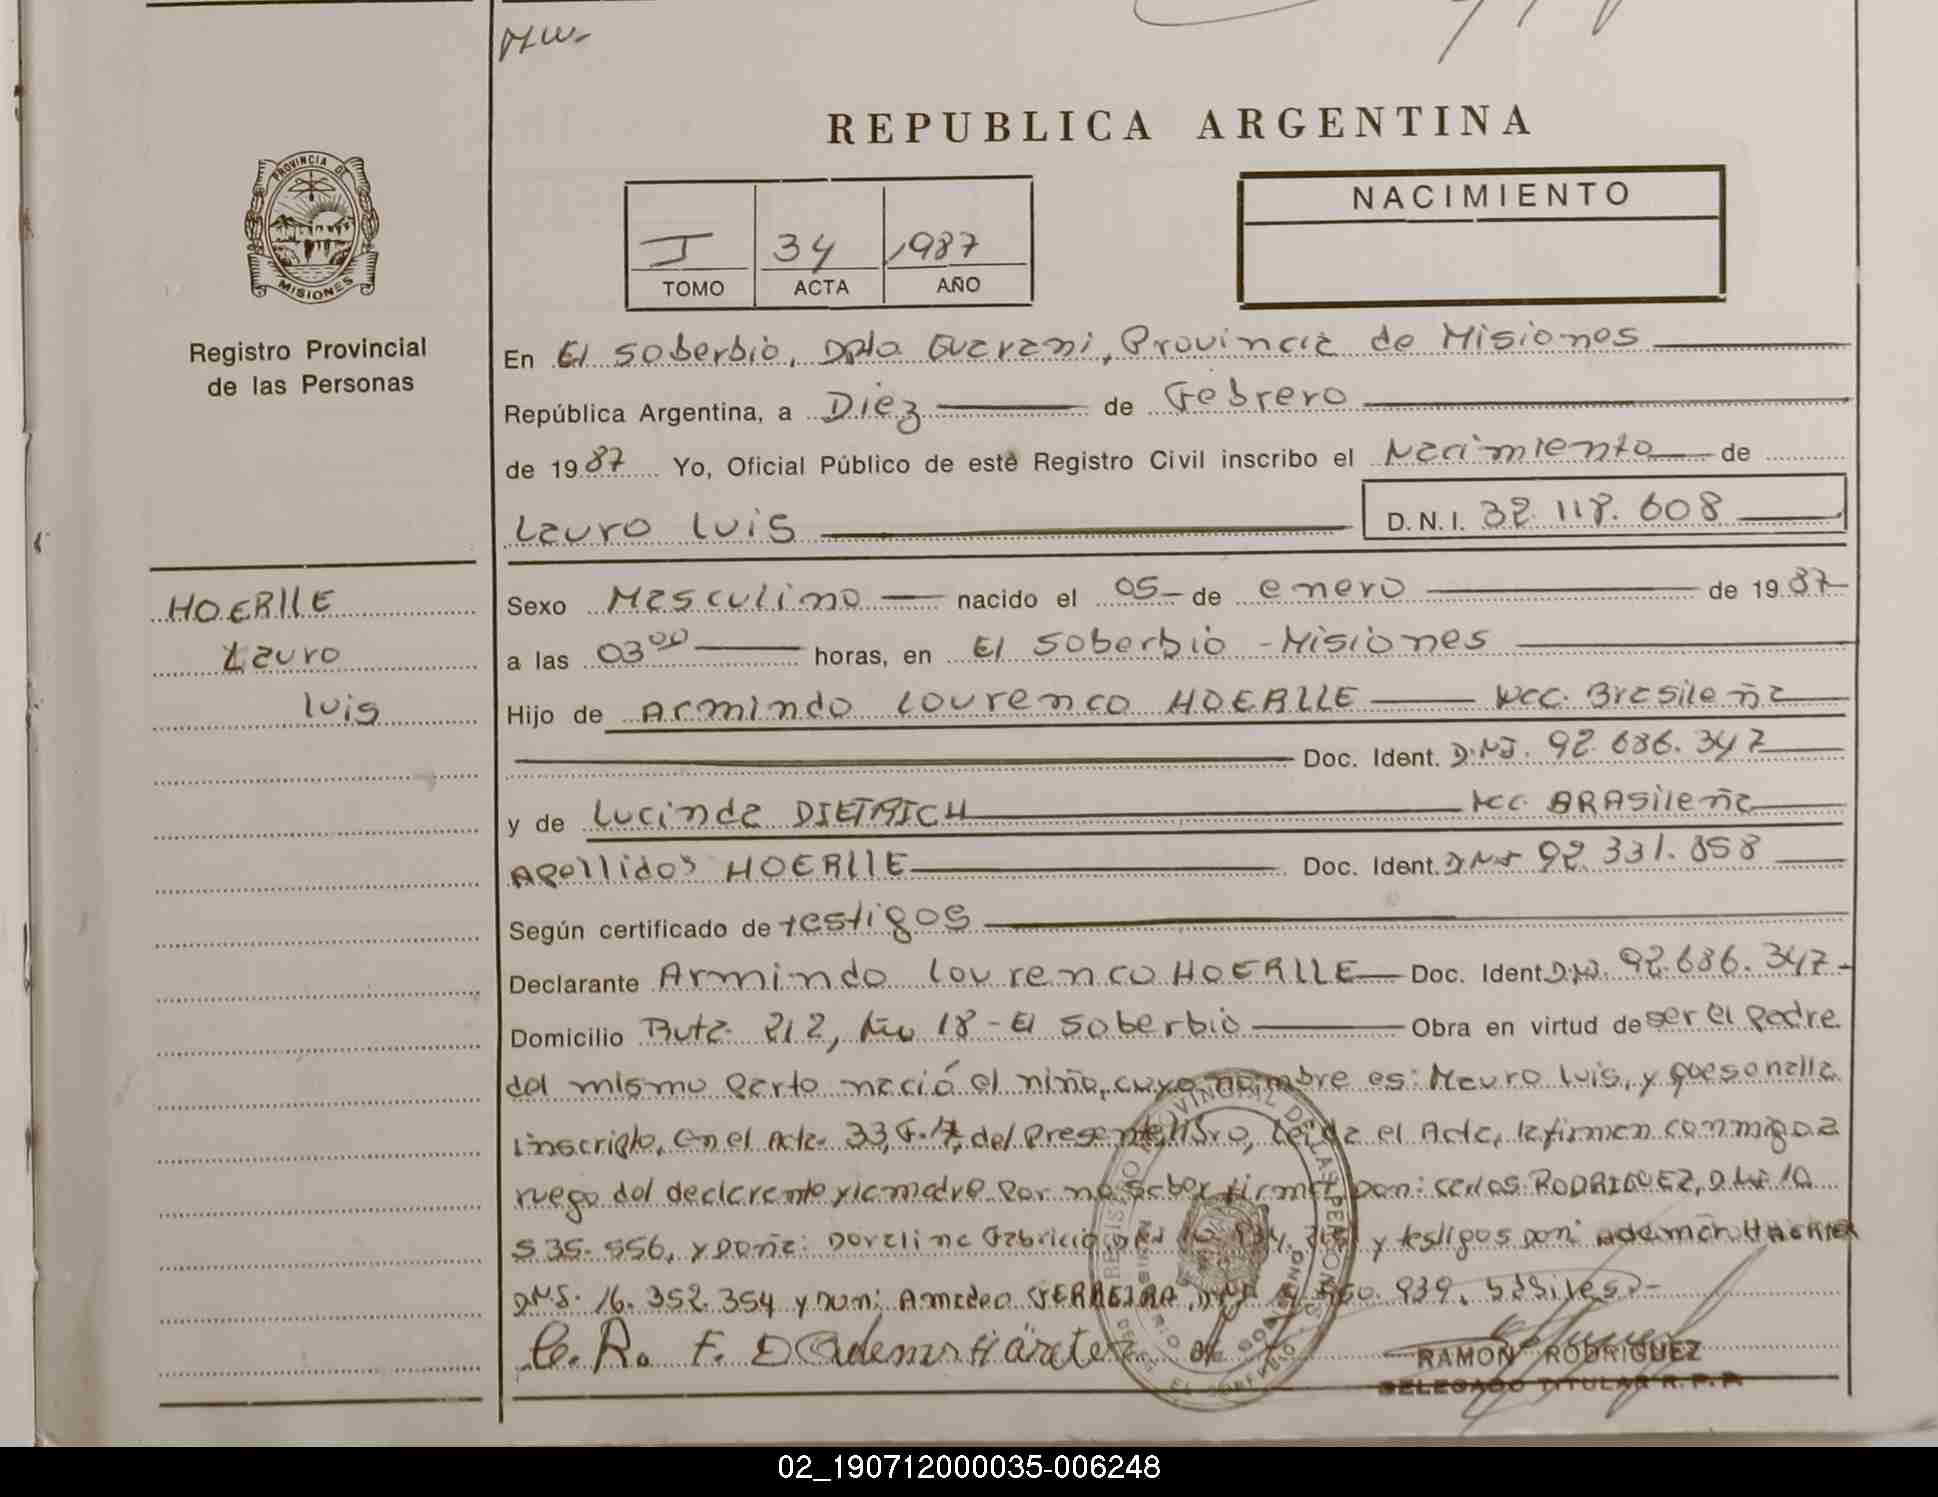 MW-
REPUBLICA ARGENTINA
PROVINCIA DE
MISIONES
Registro Provincial
de las Personas
I 34 1987
TOMO ACTA AÑO
NACIMIENTO
En El Soberbio, Dpto Guarani, Provincia de Misiones
República Argentina, a Diez de Febrero
de 1987 Yo, Oficial Público de este Registro Civil inscribo el Nacimiento de
Lauro Luis D.N.I. 32.118.608
HOERLLE
Lauro
Luis
Sexo Masculino nacido el 05 de enero de 1987
a las 03⁰⁰ horas, en El Soberbio - Misiones
Hijo de Armindo Lourenco HOERLLE Nac. Brasileña
Doc. Ident. D.N.I. 92.686.347
y de Lucinda DIETRICH Nac. BRAsileña
Apellidos HOERLLE Doc. Ident. DNI 92.331.858
Según certificado de testigos
Declarante Armindo Lourenco HOERLLE Doc. Ident D.N.I. 92.686.347-
Domicilio Ruta 212, Km 18 - El Soberbio Obra en virtud de ser el padre
del mismo parto nació el niño, cuyo nombre es: Mauro Luis, y que se halla
inscripto, en el Acta 33, F. 17, del presente libro, Leida el Acta, la firman conmigo a
ruego del declarante y la madre por no saber firmar Don: Carlos RODRIGUEZ, DNI 10
535.556, y Doña: Doralina Fabricio y testigos Don: Ademar
DNI. 16.352.354 y Don: Amadeo FERREIRA, 939.
C. R. F. D
RAMON RODRIGUEZ
DELEGADO TITULAR R.P.P.
02_190712000035-006248